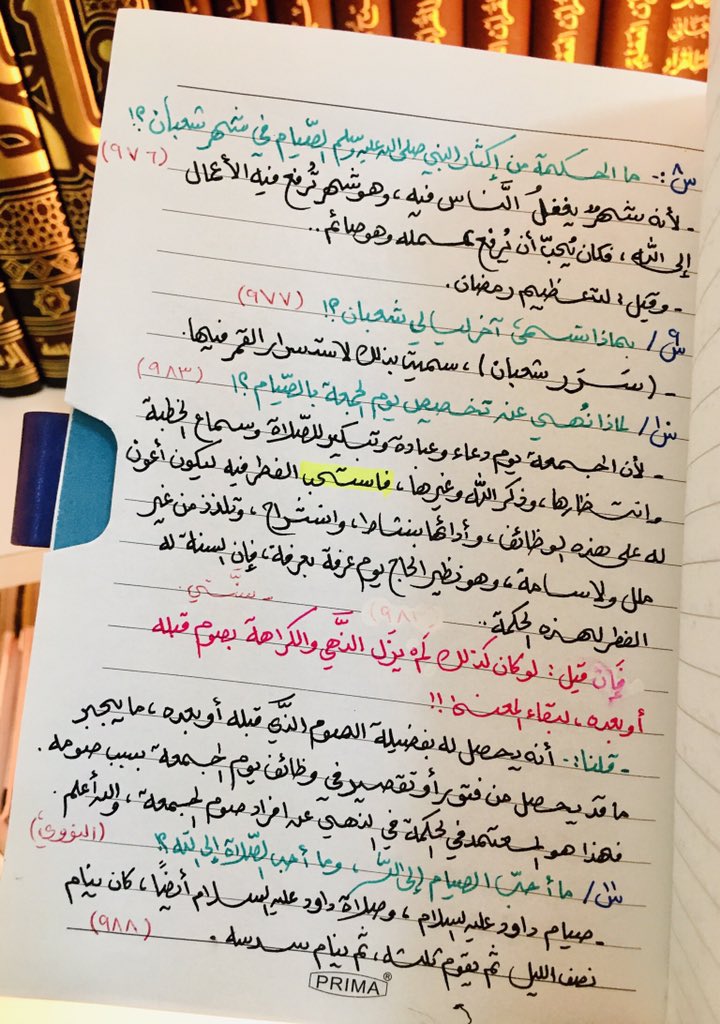 س٨:- ما الحكمة من إكثار النبي صلى الله عليه وسلم الصّيام في شهر شعبان؟!
(٩٧٦)
- لأنه شهرٌ يغفلُ النَّاس فيه، وهو شهر تُرفع فيه الأعمال
إلى الله، فكان يُحبّ أن يُرفع عمله وهو صائم..
- وقيل: لتعظيم رمضان.
س٩/ بماذا تسمى آخر ليالي شعبان؟! (٩٧٧)
- (سَرَر شعبان)، سميت بذلك لاستسرار القمر فيها.
س١٠/ لماذا نُهي عنه تخصيص يوم الجمعة بالصّيام؟! (٩٨٣)
- لأن الجمعة يوم دعاء وعبادة وتبكير للصّلاة وسماع الخطبة
وانتظارها، وذكر الله وغيرها، فاستحب الفطر فيه ليكون أعون
له على هذه الوظائف، وأدائها بنشاط، وانشراح، وتلذذ من غير
ملل ولا سامة، وهو نظير الحاج يوم عرفة بعرفة، فإن السنة له
الفطر لهذه الحكمة..
فإن قيل: لو كان كذلك لم يزل النَّهي والكراهة بصوم قبله
أو بعده، لبقاء المعنى!!
- قلنا:- أنه يحصل له بفضيلة الصوم الذَّي قبله أو بعده، ما يجبر
ما قد يحصل من فتور أو تقصير في وظائف يوم الجمعة بسبب صومه.
فهذا هو المعتمد في الحكمة في النهي عن افراد صوم الجمعة، والله أعلم.
(النووي)
س١١/ ما أحبّ الصيام إلى الله، وما أحب الصّلاة إلى الله؟!
- صيام داود عليه السلام، وصلاة داود عليه السلام أيضًا، كان ينام
نصف الليل ثم يقوم ثلثه، ثم ينام سدسه. (٩٨٨)
PRIMA®